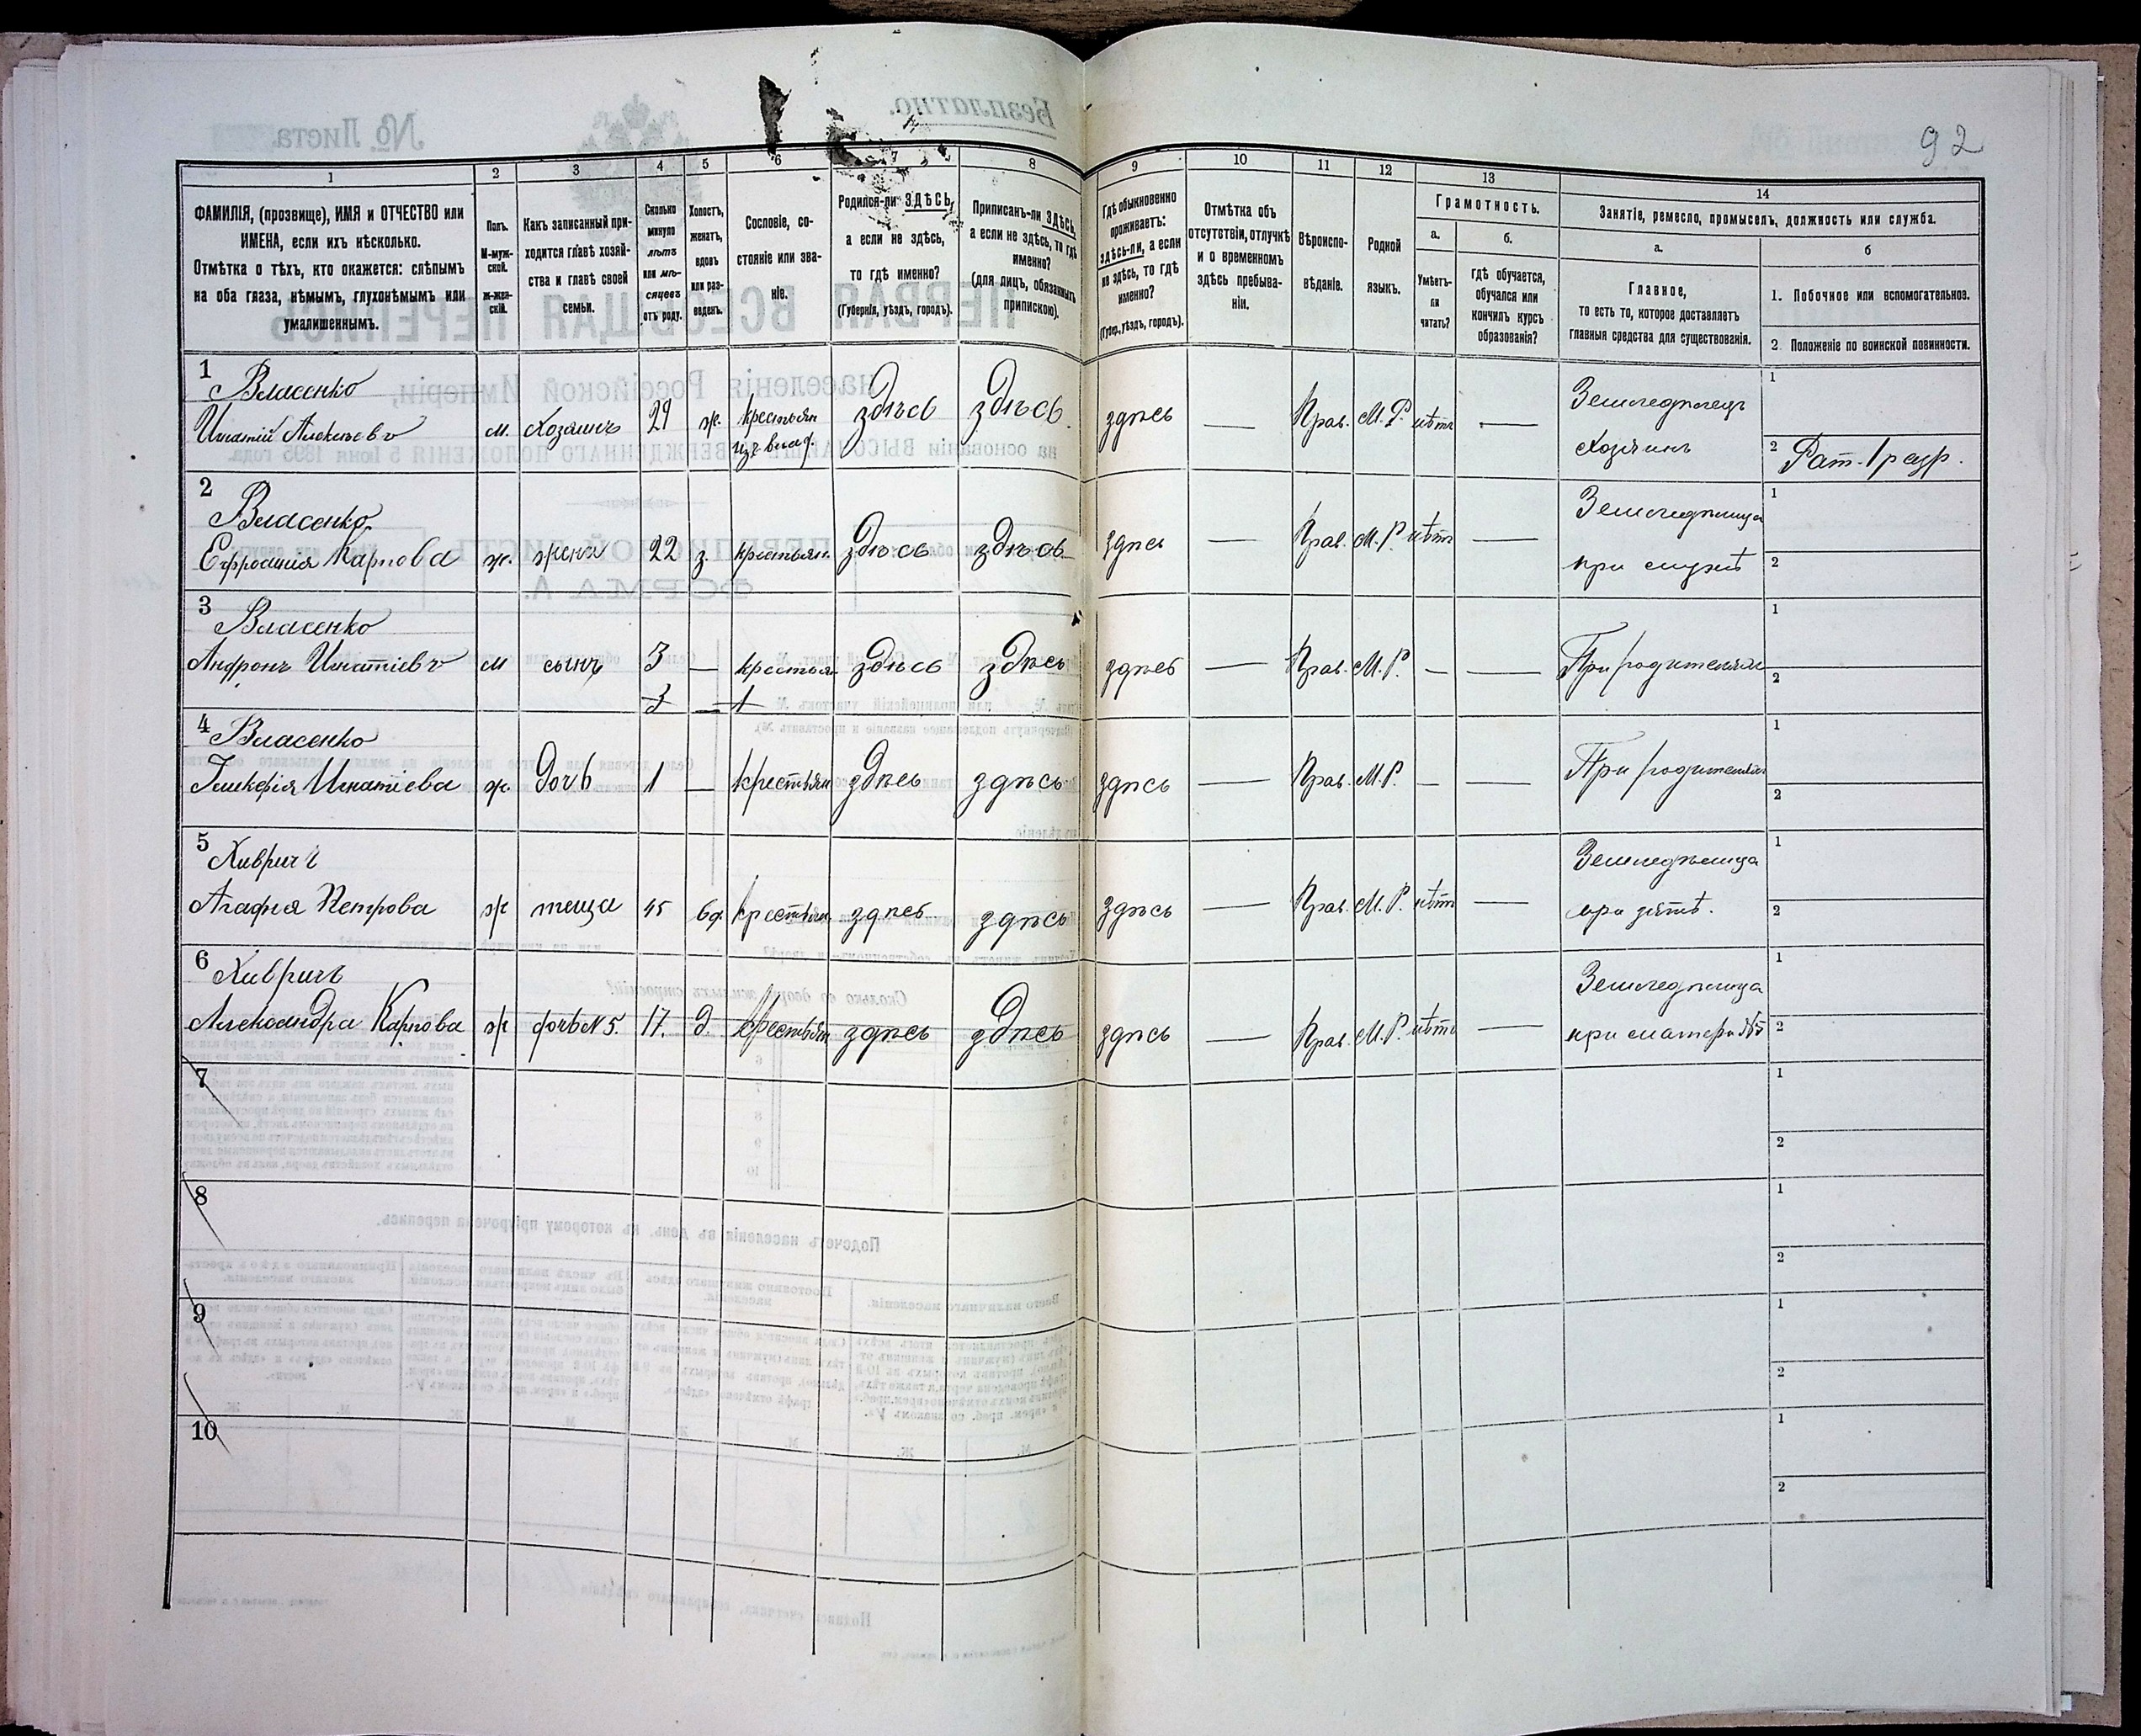 92
1 2 3 4 5 6 7 8 9 10 11 12 13 14
ФАМИЛІЯ, (прозвище), ИМЯ и ОТЧЕСТВО или ИМЕНА, если ихъ нѣсколько.
Отмѣтка о тѣхъ, кто окажется: слѣпымъ на оба глаза, нѣмымъ, глухонѣмымъ или умалишеннымъ.
Полъ. М-мужской. Ж-женскій.
Какъ записанный приходится главѣ хозяйства и главѣ своей семьи.
Сколько минуло лѣтъ или мѣсяцевъ отъ роду.
Холостъ, женатъ, вдовъ или разведенъ.
Сословіе, состояніе или званіе.
Родился-ли ЗДѢСЬ, а если не здѣсь, то гдѣ именно? (Губернія, уѣздъ, городъ).
Приписанъ-ли ЗДѢСЬ, а если не здѣсь, то гдѣ именно? (для лицъ, обязанныхъ припискою).
Гдѣ обыкновенно проживаетъ: здѣсь-ли, а если не здѣсь, то гдѣ именно? (Губер., уѣздъ, городъ).
Отмѣтка объ отсутствіи, отлучкѣ и о временномъ здѣсь пребываніи.
Вѣроисповѣданіе.
Родной языкъ.
Грамотность.
а. Умѣетъ-ли читать?
б. гдѣ обучается, обучался или кончилъ курсъ образованія?
Занятіе, ремесло, промыселъ, должность или служба.
а. Главное, то есть то, которое доставляетъ главныя средства для существованія.
б
1. Побочное или вспомогательное.
2. Положеніе по воинской повинности.
1 Власенко
Игнатій Алексѣевъ м. Хозяинъ 29 ж. крестьян изъ влад. здѣсь здѣсь здѣсь — Прав. М.Р. нѣтъ — Земледѣлецъ хозяинъ 1
2 Рат. 1 разр.
2 Власенко
Ефросинія Карпова ж. жена 22 з. крестьян здѣсь здѣсь здѣсь — Прав. М.Р. нѣтъ — Земледѣлица при мужѣ 1
2
3 Власенко
Андронъ Игнатіевъ м сынъ 3 — крестьян здѣсь здѣсь здѣсь — Прав. М.Р. — — При родителяхъ 1
2
3 — 1
4 Власенко
Гликерія Игнатіева ж. дочь 1 — крестьян здѣсь здѣсь здѣсь — Прав. М.Р. — — При родителяхъ 1
2
5 Хивричъ
Агафія Петрова ж теща 45 вд. крестьян здѣсь здѣсь здѣсь — Прав. М.Р. нѣтъ — Земледѣлица при зятѣ. 1
2
6 Хивричъ
Александра Карпова ж дочь N 5. 17. д. крестьян здѣсь здѣсь здѣсь — Прав. М.Р. нѣтъ — Земледѣлица при матери №5 1
2
7 1
2
8 1
2
9 1
2
10 1
2